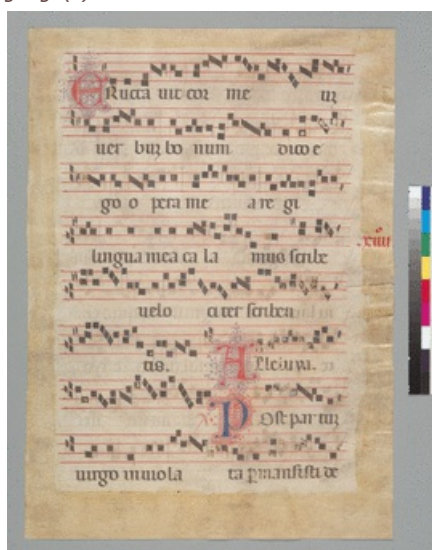 ERucta uit cor me um
uer bum bo num dico e
go o pera me a re gi
lingua mea ca la mus scribe
uelo ci ter scriben
tis. Alleluya.
Post par tum
uirgo inuiola ta permansisti de